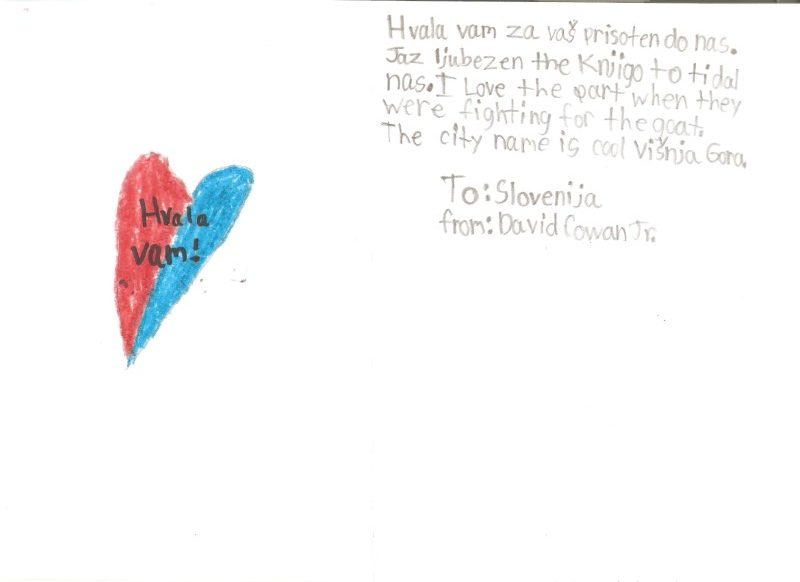 Hvala
vam!
Hvala vam za vaš prisoten do nas.
Jaz ljubezen the Knjigo to ti dal
nas. I Love the part when they
were fighting for the goat.
The city name is cool Višnja Gora.
To: Slovenija
from: David Cowan Jr.